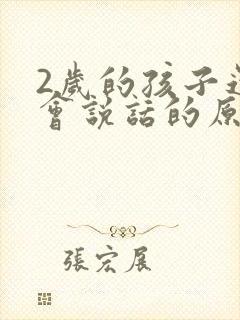 2歲的孩子
會說話的原
張宏展